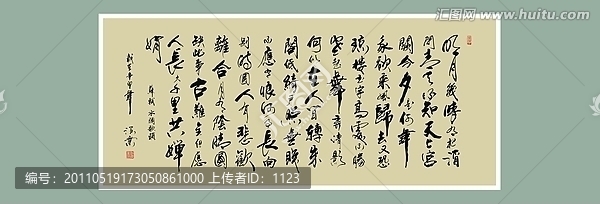 明月幾時有把酒
問青天不知天上宮
闕今夕是何年我
欲乘風歸去又恐
瓊樓玉宇高處不勝
寒起舞弄清影
何似在人間轉朱
閣低綺戶照無眠
不應有恨何事長向
別時圓人有悲歡
離合月有陰晴圓
缺此事古難全但願
人長久千里共嬋
娟
蘇軾 水調歌頭
www.huitu.com
编号：20110519173050861000 上传者ID：1123